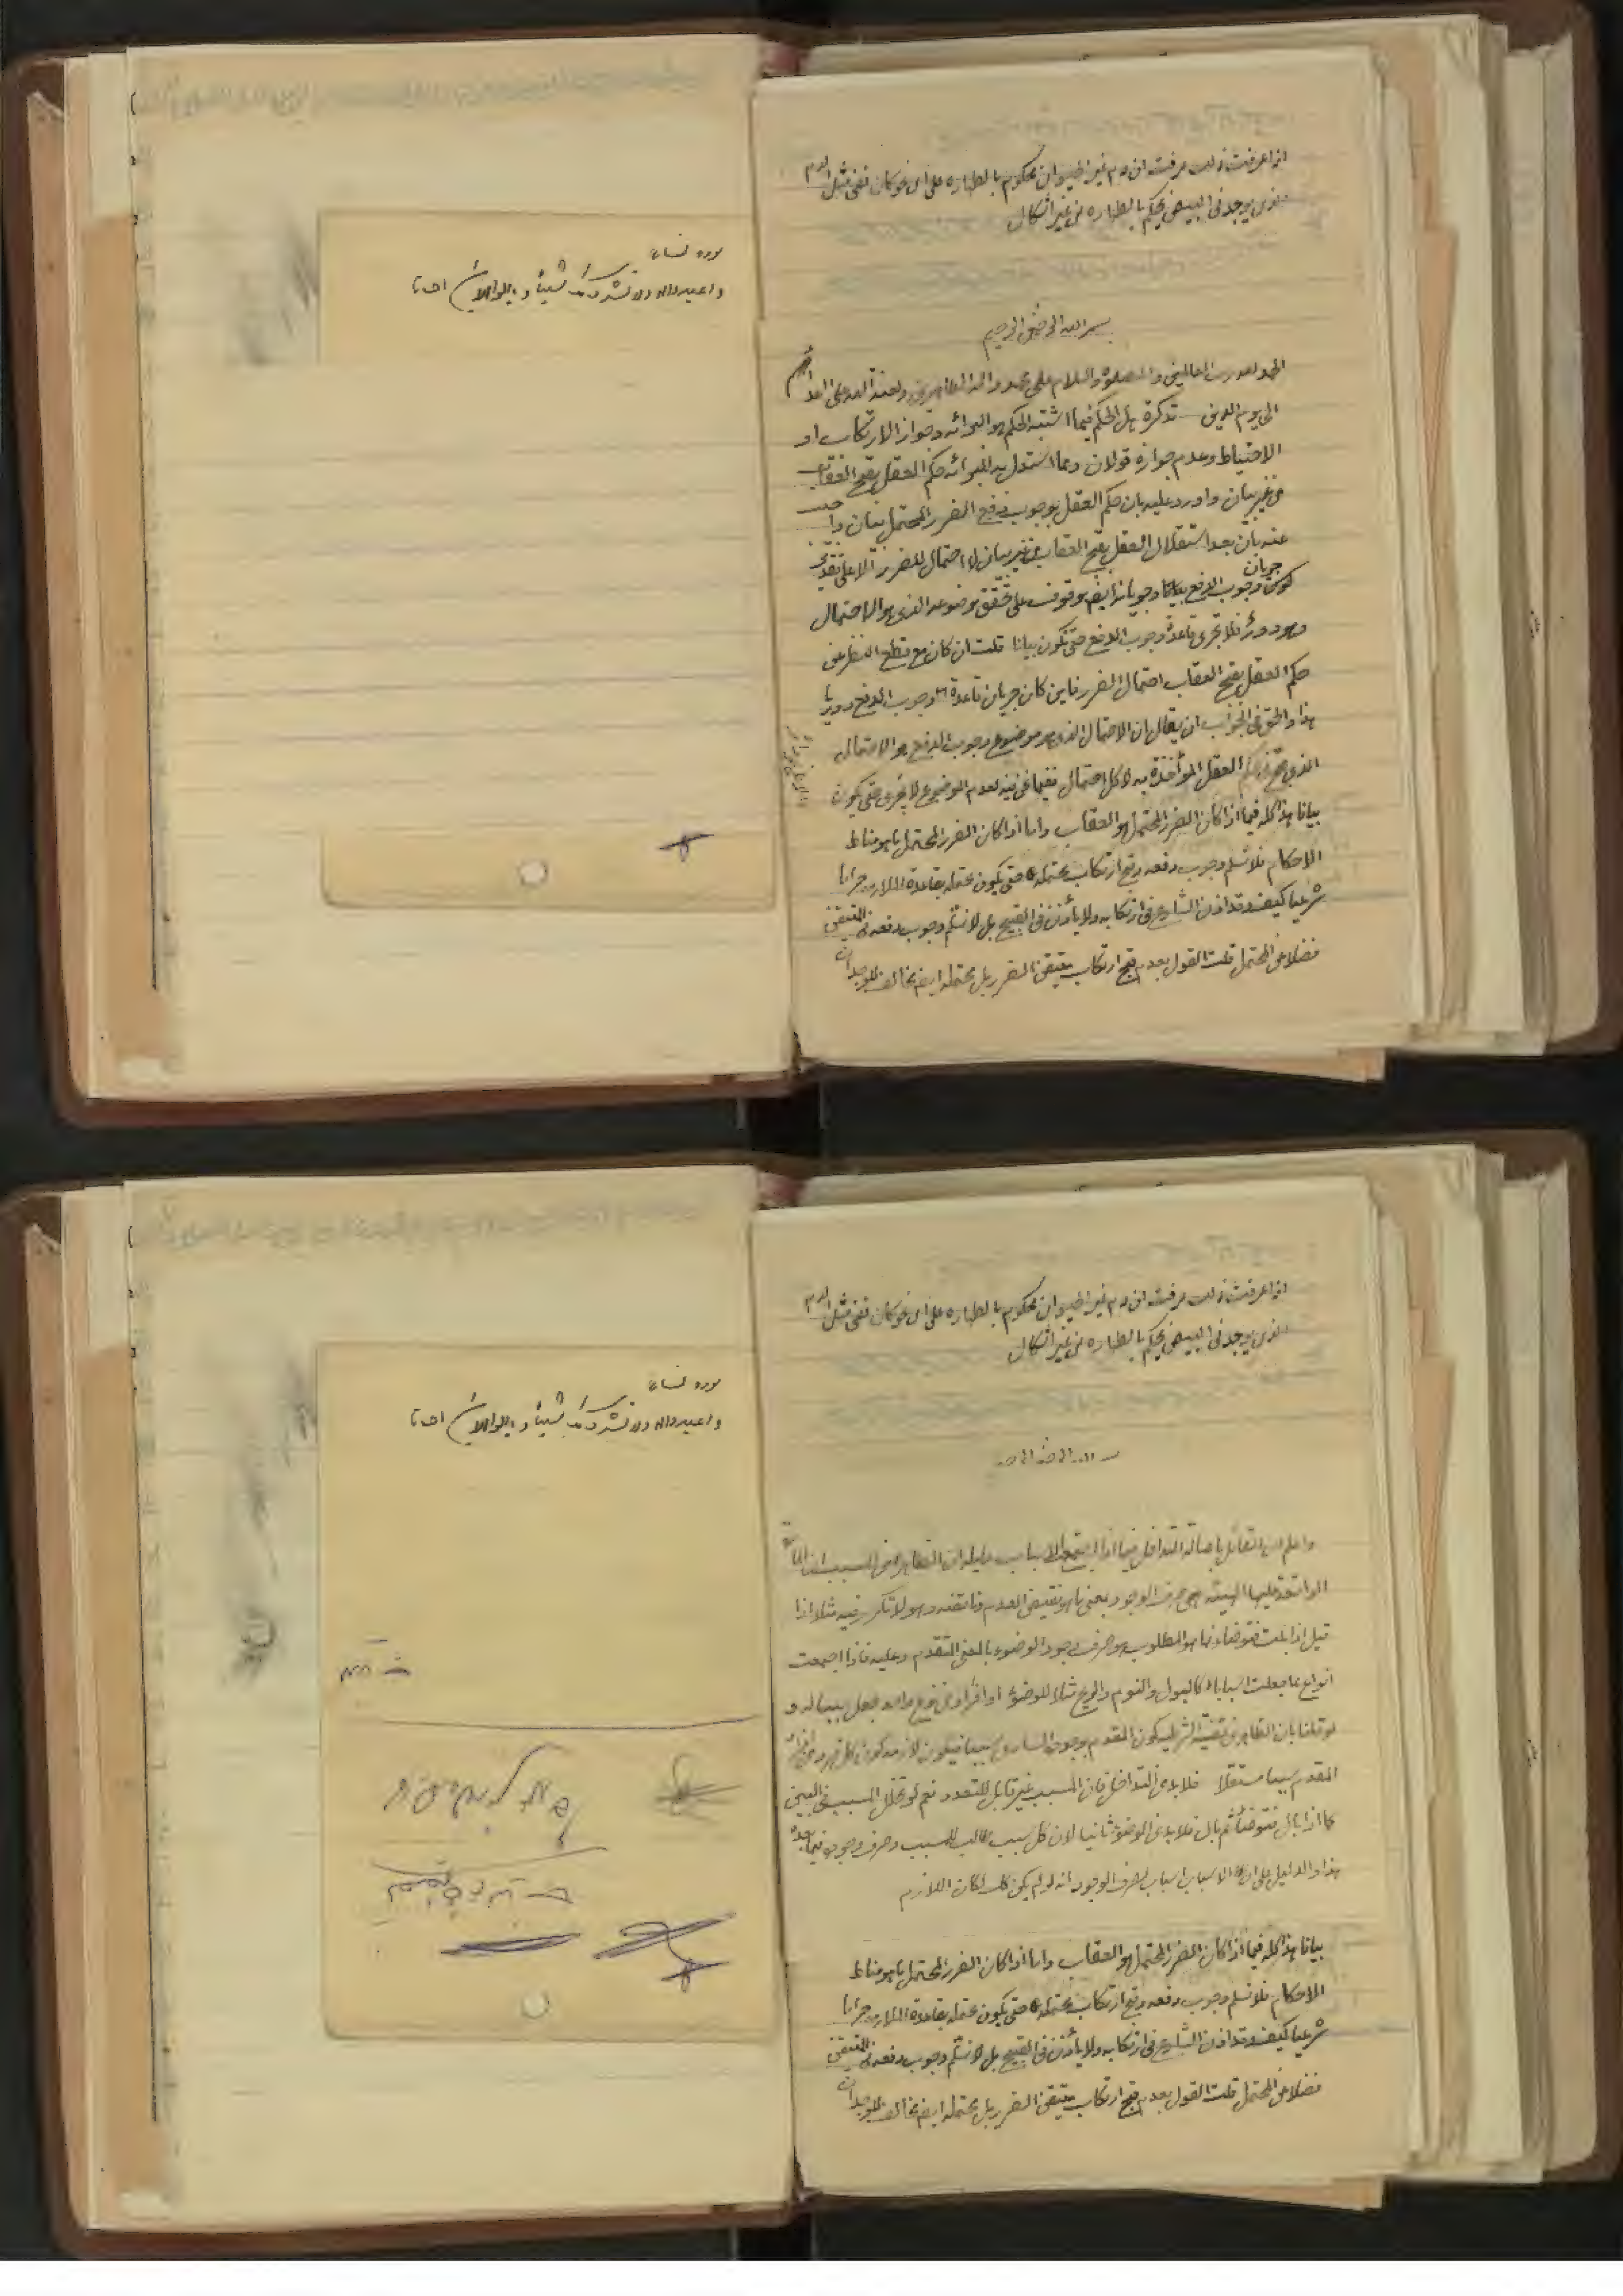 اذا عرفت ذلك عرفت ان دم غير الحيوان محكوم بالطهاره على اى نحو كان نفى مثل الدم
الذى يوجد فى البيض يحكم بالطهاره من غير اشكال
بسم الله الرحمن الرحيم
الحمد لله رب العالمين والصلوة والسلام على محمد واله الطاهرين ولعنة الله على اعدائهم
الى يوم الدين تذكرة هل الحكم فيما اشتبه الحكم هو البرائه وجواز الارتكاب او
الاحتياط وعدم جوازه قولان ومما استدل به للبرائه حكم العقل بقبح العقاب
من غير بيان واورد عليه بان حكم العقل بوجوب دفع الضرر المحتمل بيان واجيب
عنه بان بعد استقلال العقل بقبح العقاب من غير بيان لا احتمال للضرر الا على تقدير
كون وجوب الدفع بيانا وجريانه ايضا موقوف على تحقق موضوعه الذى هو الاحتمال
جريان
وهو دور فلا تجرى قاعدة وجوب الدفع حتى تكون بيانا قلت ان كان مع قطع النظر عن
حكم العقل بقبح العقاب احتمال الضرر فاين كان جريان قاعدة وجوب الدفع دوريا
هذا والحق فى الجواب ان يقال ان الاحتمال الذى هو موضوع وجوب الدفع هو الاحتمال
الذى العقل المؤاخذة به لا كل احتمال ففيما نحن فيه لعدم الموضوع لا يجرى حتى يكون
بيانا هذا كله فيما اذا كان الضرر المحتمل هو العقاب واما اذا كان الضرر المحتمل ما هو مناط
الاحكام فلا نسلم وجوب دفعه وقبح ارتكاب محتمله حتى يكون محتمله بقاعدة الملازمه حراما
شرعيا كيف وقد اذن الشارع فى ارتكابه ولا يأذن فى القبيح بل لا نسلم وجوب دفعه فى المتيقن
فضلا عن المحتمل قلت القول بعدم قبح ارتكاب متيقن الضرر بل محتمله ايضا مخالف للوجدان
سوره نساء
واعبدوا الله ولا تشركوا به شيئا و بالوالدين احسانا
اذا عرفت ذلك عرفت ان دم غير الحيوان محكوم بالطهاره على اى نحو كان نفى مثل الدم
الذى يوجد فى البيض يحكم بالطهاره من غير اشكال
بسم الله الرحمن الرحيم
واعلم ان القائل باصالة التداخل فيما اذا اجتمعت الاسباب دليله ان الظاهر من السبب
الواقعة عليها الهيئه هى صرف الوجود بمعنى ما هو نقيض العدم وناقضه وهو لا تكرر فيه مثلا اذا
قيل اذا بلت فتوضأ فما هو المطلوب هو صرف وجود الوضوء بالمعنى المتقدم وعليه فاذا اجتمعت
انواع مما جعلت اسبابا كالبول والنوم والريح مثلا للوضوء او افراد من نوع واحد جعل سببا له و
لو قلنا بان الظاهر من قضية الشرطيه كون المقدم بوجوده السارى سببا فيكون لازمه كون كل فرد من افراد
المقدم سببا مستقلا فلابد من التداخل فان المسبب غير قابل للتعدد نعم لو تخلل المسبب فى البين
كما اذا بال فتوضأ ثم بال فلابد من الوضوء ثانيا لان كل سبب طالب للمسبب وصرف وجوده فيما بعده
هذا والدليل على ان الاسباب اسباب لصرف الوجود انه لو لم يكن كك لكان اللازم
بيانا هذا كله فيما اذا كان الضرر المحتمل هو العقاب واما اذا كان الضرر المحتمل ما هو مناط
الاحكام فلا نسلم وجوب دفعه وقبح ارتكاب محتمله حتى يكون محتمله بقاعدة الملازمه حراما
شرعيا كيف وقد اذن الشارع فى ارتكابه ولا يأذن فى القبيح بل لا نسلم وجوب دفعه فى المتيقن
فضلا عن المحتمل قلت القول بعدم قبح ارتكاب متيقن الضرر بل محتمله ايضا مخالف للوجدان
سوره نساء
واعبدوا الله ولا تشركوا به شيئا و بالوالدين احسانا